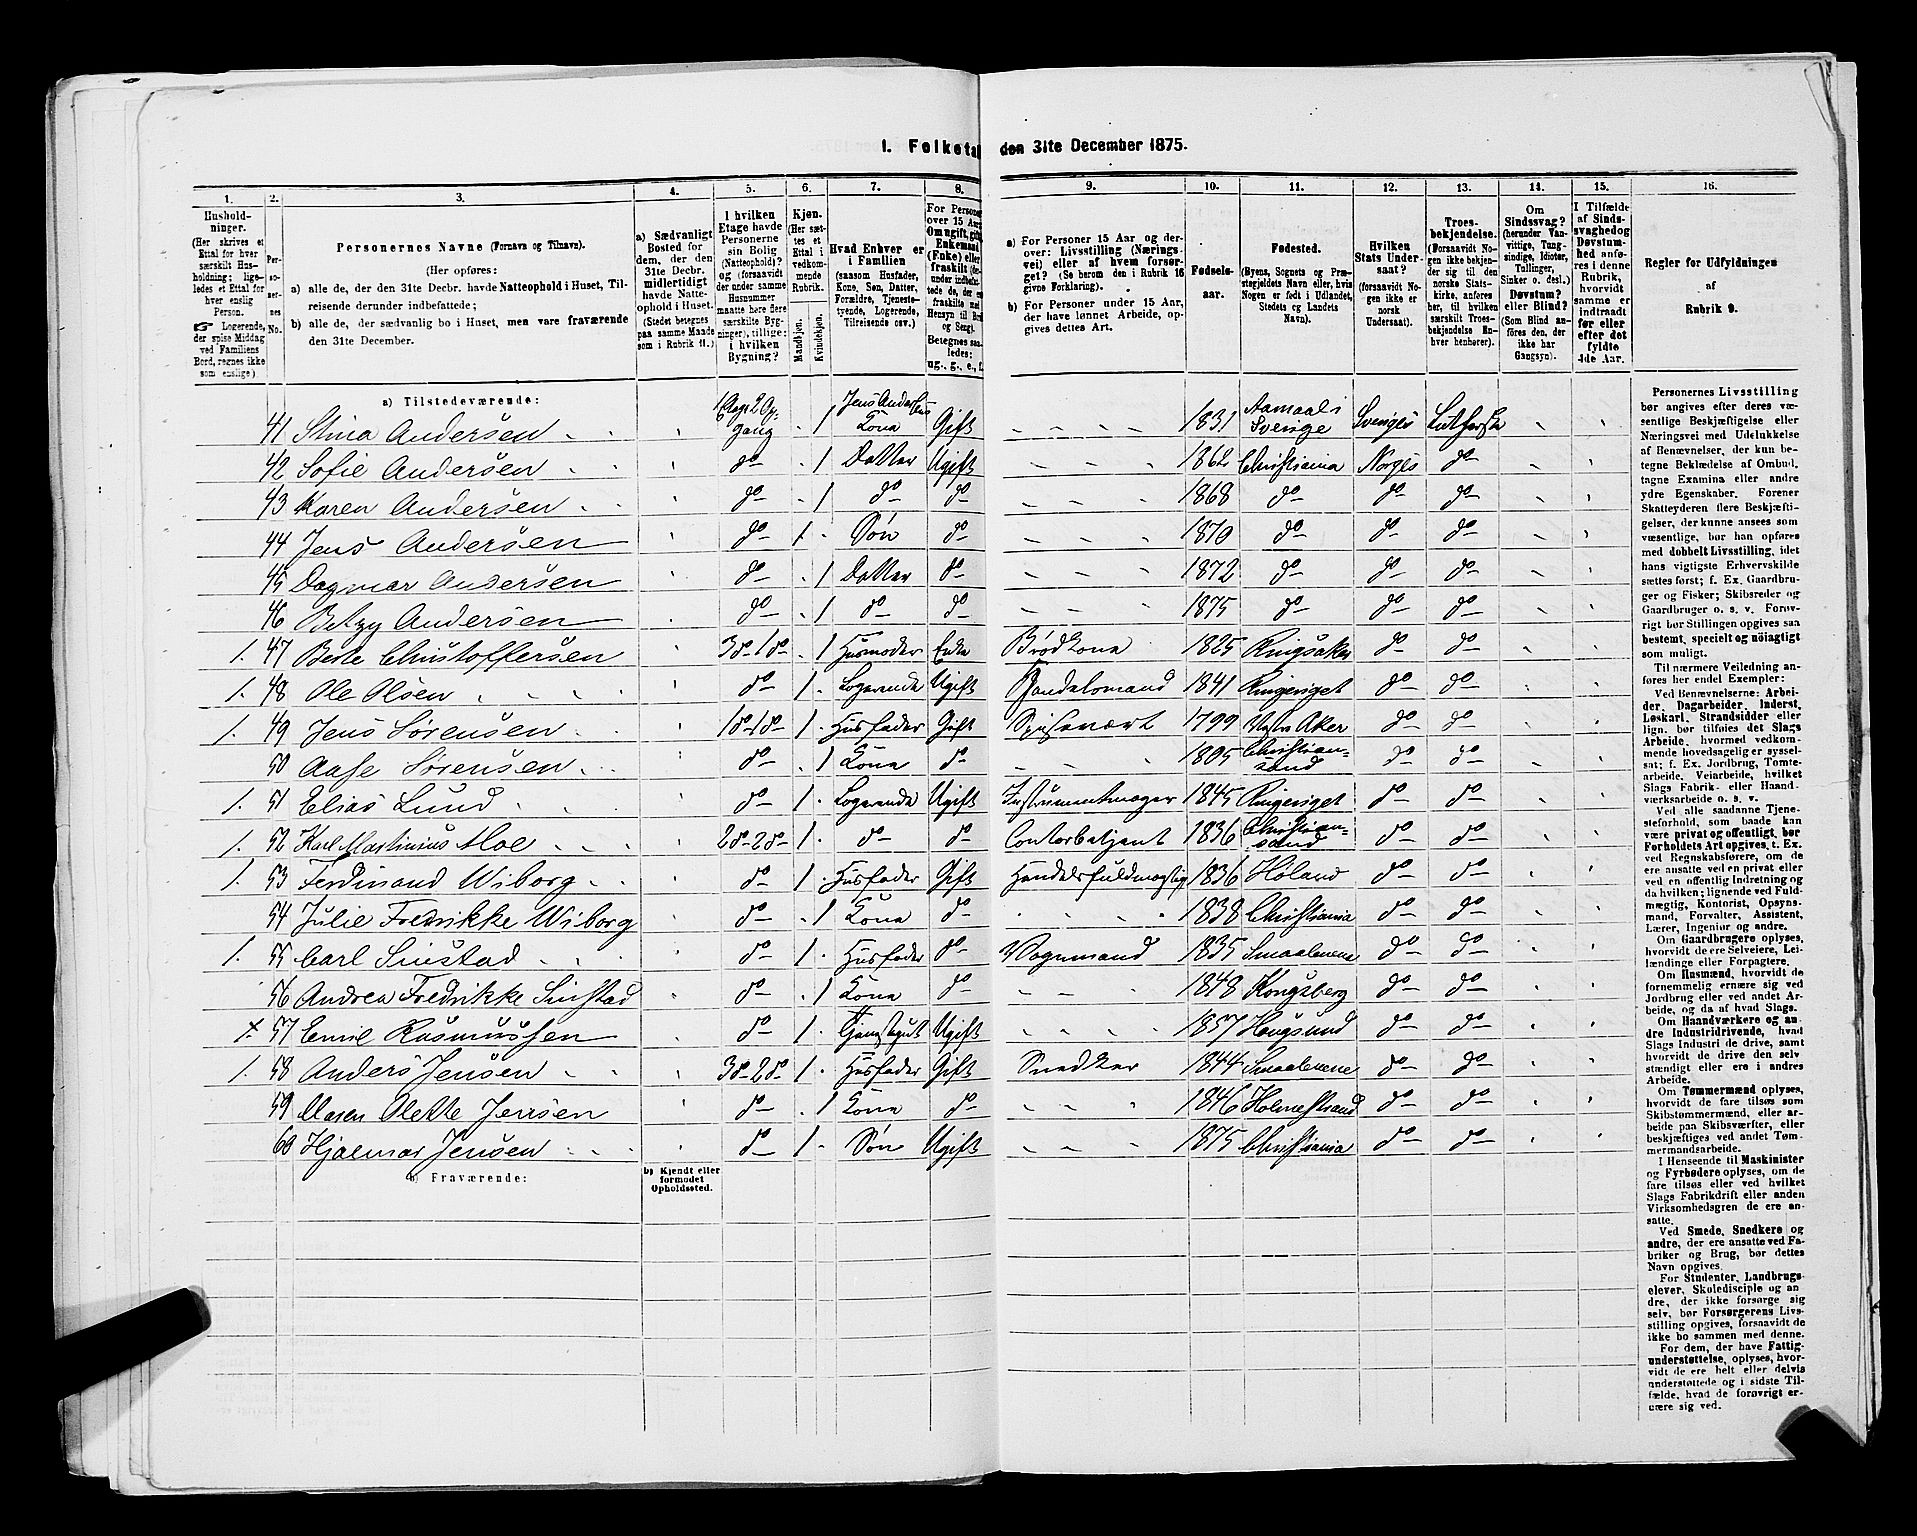 I. Folketal den 31te December 1875.
1. 2. 3. 4. 5. 6. 7. 8. 9. 10. 11. 12. 13. 14. 15. 16.
Hushold-
ninger.
(Her skrives et
Ettal for hver
særskilt Hus-
holdning; lige-
ledes et Ettal for
hver enslig
Person.
☞ Logerende,
der spise Middag
ved Familiens
Bord, regnes ikke
som enslige.)
Per-
so-
ner-
nes
No.
Personernes Navne (Fornavn og Tilnavn).
(Her opføres:
a) alle de, der den 31te Decbr. havde Natteophold i Huset, Til-
reisende derunder indbefattede;
b) alle de, der sædvanlig bo i Huset, men vare fraværende
den 31te December.
a) Sædvanligt
Bosted for
dem, der den
31te Decbr.
midlertidigt
havde Natte-
ophold i Huset.
(Stedet betegnes
paa samme Maade
som i Rubrik 11.)
I hvilken
Etage havde
Personerne
sin Bolig
(Natteophold)?
og (forsaavidt
der under samme
Husnummer
maatte høre flere
særskilte Byg-
ninger), tillige:
i hvilken
Bygning?
Kjøn.
(Her sæt-
tes et
Ettal i
vedkom-
mende
Rubrik.
Mandkjøn.
Kvindekjøn.
Hvad Enhver er
i Familien
(saasom Husfader,
Kone, Søn, Datter,
Forældre, Tjeneste-
tyende, Logerende,
Tilreisende osv.).
For Personer
over 15 Aar:
Om ugift, gift,
Enkemand
(Enke) eller
fraskilt
Betegnes saa-
ledes:
ug., g., e., f.
a) For Personer 15 Aar og der-
over: Livsstilling (Nærings-
vei) eller af hvem forsør-
get? (Se herom den i Rubrik 16
givne Forklaring).
b) For Personer under 15 Aar,
der have lønnet Arbeide, op-
gives dettes Art.
Fødsels-
aar.
Fødested.
(Byens, Sognets og Præ-
stegjeldets Navn eller, hvis
Nogen er født i Udlandet,
Stedets og Landets
Navn).
Hvilken
Stats Under-
saat?
(forsaavidt No-
gen ikke er
norsk
Undersaat).
Troes-
bekjendelse.
(Forsaavidt No-
gen ikke bekjen-
der sig til den
norske Stats-
kirke, anføres
her, til hvilken
særskilt Troes-
bekjendelse En-
hver henhører).
Om
Sindssvag?
(herunder Van-
vittige, Tung-
sindige, Idioter,
Tullinger,
Sinker o. desl.)
Døvstum?
eller Blind?
(Som Blind an-
føres den, der
ikke har
Gangsyn).
I Tilfælde
af Sinds-
svaghed og
Døvstum-
hed anføres
i denne
Rubrik,
hvorvidt
samme er
indtraadt
før eller
efter det
fyldte
4de Aar.
Regler for Udfyldningen
af
Rubrik 9.
a) Tilstedeværende:
41 Stina Andersen 1 Jens Andersens Kona Gift 1831 Aamaal i Sverige Sveriges Lutherske
42 Sofie Andersen do 1 Datter Ugift 1862 Christiania Norges do
43 Karen Andersen do 1 do do 1868 do do do
44 Jens Andersen do 1 Søn do 1870 do do do
45 Dagmar Andersen do 1 Datter do 1872 do do do
46 Betzy Andersen do 1 do do 1875 do do do
1. 47 Beate Christoffersen 3do 1do 1 Husmoder Enke Brødkona 1825 Ringsaker do do
1. 48 Ole Olsen do 1 Logerende Ugift Handelsmand 1841 Ringeriget do do
1. 49 Jens Sørensen 1do 1do 1 Husfader Gift Spisevært 1799 Vestre Aker do do
50 Aase Sørensen do 1 Kona do 1805 Christiansand do do
1. 51 Elias Lund do 1 Logerende Ugift Instrumentmager 1845 Ringeriget do do
1. 52 Karl Martinius Moe 2do 2do 1 do do Contorbetjent 1836 Christiansand do do
1. 53 Ferdinand Wiborg do 1 Husfader Gift Handelsfuldmægtig 1836 Høland do do
54 Julie Fredrikke Wiborg do 1 Kona do 1838 Christiania do do
1. 55 Carl Sinstad do 1 Husfader do Vognmand 1835 Smaalenene do do
56 Andrea Fredrikke Sinstad do 1 Kona do 1848 Kongsberg do do
x. 57 Emil Rasmussen do 1 Tjenestgut Ugift 1857 Hougsund do do
1. 58 Anders Jensen 3do 2do 1 Husfader Gift Snedker 1844 Smaalenene do do
59 Maren Olette Jensen do 1 Kona do 1846 Holmestrand do do
60 Hjalmar Jensen do 1 Søn Ugift 1875 Christiania do do
b) Fraværende:
b) Kjendt eller
formodet
Opholdssted.
Personernes Livsstilling
bør angives efter deres væ-
sentlige Beskjæftigelse eller
Næringsvei med Udelukkelse
af Benævnelser, der kun be-
tegne Beklædelse af Ombud,
tagne Examina eller andre
ydre Egenskaber. Forener
Skatteyderen flere Beskjæfti-
gelser, der kunne ansees som
væsentlige, bør han opføres
med dobbelt Livsstilling, idet
hans vigtigste Erhvervskilde
sættes først; f. Ex. Gaardbru-
ger og Fisker; Skibsreder og
Gaardbruger o. s. v. Forøv-
rigt bør Stillingen opgives saa
bestemt, specielt og nöiagtigt
som muligt.
Til nærmere Veiledning an-
føres her endel Exempler:
Ved Benævnelserne: Arbei-
der, Dagarbeider, Inderst,
Løskarl, Strandsidder eller
lign. bør tilføies det Slags
Arbeide, hvormed vedkom-
mende hovedsagelig er syssel-
sat; f. Ex. Jordbrug, Tomte-
arbeide, Veiarbeide, hvilket
Slags Fabrik- eller Haand-
værksarbeide o. s. v.
Ved alle saadanne Tjene-
steforhold, som baade kan
være privat og offentligt, bør
Forholdets Art opgives, t. Ex.
ved Regnskabsførere, om de
ere ansatte ved en privat eller
ved en offentlig Indretning og
da hvilken; lignende ved Fuld-
mægtig, Kontorist, Opsyns-
mand, Forvalter, Assistent,
Lærer, Ingeniør og andre.
Om Gaardbrugere oplyses,
hvorvidt de ere Selveiere, Lei-
lændinge eller Forpagtere.
Om Husmænd, hvorvidt de
fornemmelig ernære sig ved
Jordbrug eller ved andet Ar-
beide, og da af hvad Slags.
Om Haandværkere og an-
dre Industridrivende, hvad
Slags Industri de drive, samt
hvorvidt de drive den selv-
stændigt eller ere i andres
Arbeide.
Om Tømmermænd oplyses,
hvorvidt de fare tilsøs som
Skibstømmermænd, eller ar-
beide paa Skibsværfter, eller
beskjæftiges ved andet Tøm-
mermandsarbeide.
I Henseende til Maskinister
og Fyrbødere oplyses, om de
fare tilsøs eller ved hvilket
Slags Fabrikdrift eller anden
Virksomhedsgren de ere an-
satte.
Ved Smede, Snedkere og
andre, der ere ansatte ved Fa-
briker og Brug, bør dettes
Navn opgives.
For Studenter, Landbrugs-
elever, Skoledisciple og an-
dre, der ikke forsørge sig
selv, bør Forsørgerens Livs-
stilling opgives, forsaavidt de
ikke bo sammen med denne.
For dem, der have Fattig-
understøttelse, oplyses, hvor-
vidt de ere helt eller delvis
understøttede og i sidste Til-
fælde, hvad de forøvrigt er-
nære sig ved.